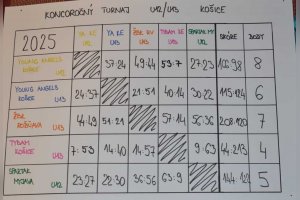 KONCOROČNÝ TURNAJ U12/U13 KOŠICE
2025 YA KE U12 YA KE U13 ŽBK RV U13 TYDAM KE U13 SPARTAK MY U12 SKÓRE BODY
YOUNG ANGELS KOŠICE U12 37:24 49:44 53:7 27:23 166:98 8
YOUNG ANGELS KOŠICE U13 24:37 21:51 40:14 30:22 115:124 6
ŽBK ROŽŇAVA U13 44:49 51:21 57:14 56:36 208:120 7
TYDAM KOŠICE U13 7:53 14:40 14:57 9:63 44:213 4
SPARTAK MYJAVA U12 23:27 22:30 36:56 63:9 144:122 5